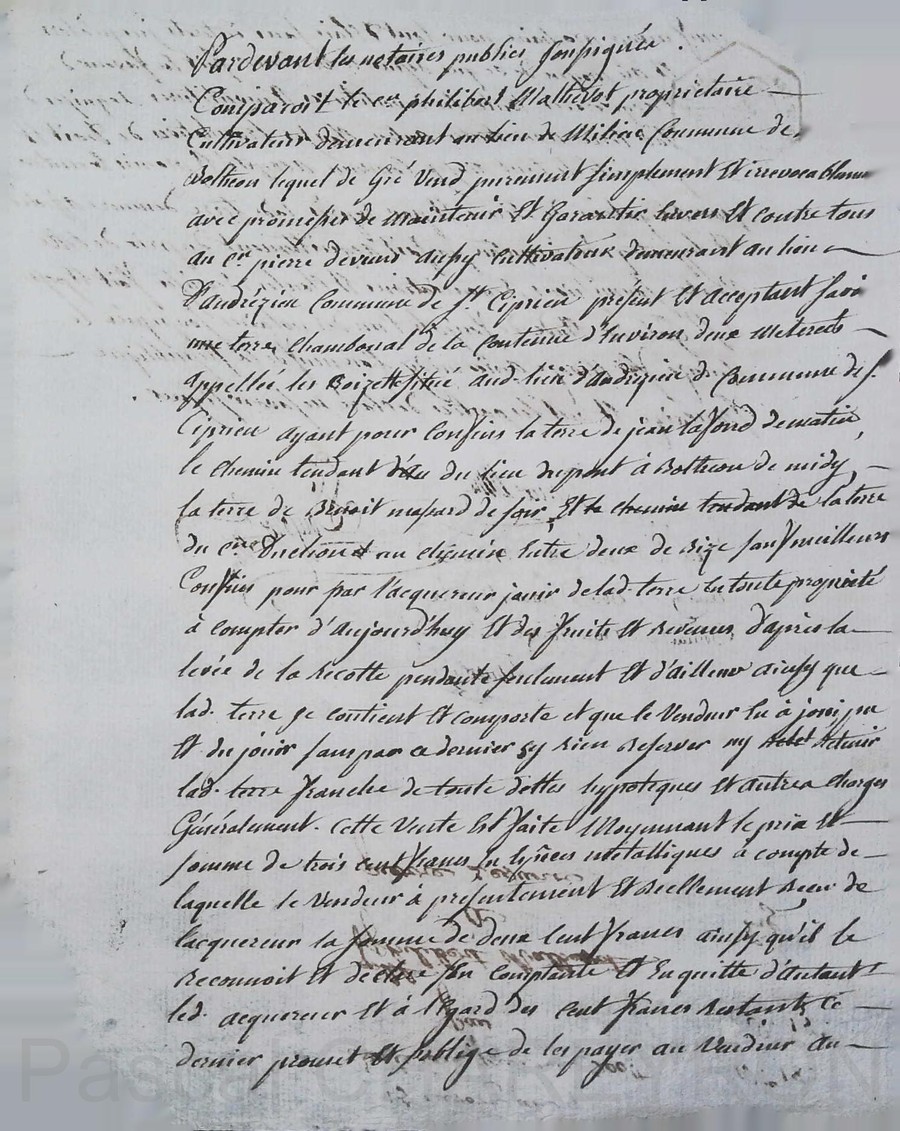 Pardevant les notaires publics soussignés.
Comparoit le cen philibert Mathevot propriétaire
Cultivateur demeurant au lieu de Milieu Commune de
Botheon lequel de Gré Vend purement simplement Et irrevocablement
avec promesses de maintenir Et Garantir Envers Et contre tous
au cen pierre devund aussy Cultivateur demeurant au lieu
D'andrézieu Commune de St. Ciprien présent Et acceptant savoir
une terre Chambonal de la contenue d'Environ deux Meterets
appellée les situé aud. lieu d'andrezieu de Commune de St.
Ciprien ayant pour Confins la terre de jean lafond de matin,
le Chemin tendant du lieu dupont à Botheon de midy,
la terre de Benoit massard de soir Et le chemin tendant de la terre
du cen au Chemin Entre deux de Bize sauf meilleurs
Confins pour par l'acquereur jouir de lad. terre En toute propriété
à Compter d'aujourd'huy Et des fruits Et Revenus d'après la
levée de la Recolte pendante seulement Et d'ailleur ainsy que
lad. terre se contient Et comporte et que le Vendeur En à joui pu
Et du jouir sans par ce dernier sy Rien Reserver ny Retenir
lad. terre franche de toute dettes hypoteques Et autres Charges
Généralement. Cette Vente Est faite Moyennant le prix Et
somme de trois cent francs En Espèces metalliques à compte de
laquelle le Vendeur à présentement Et Reellement Recu de
l'acquereur la somme de deux Cent francs ainsy qu'il le
Reconnoit Et declare s'en Contente Et En quitte d'autant
led. acquereur Et à l'Egard des Cent francs Restants, ce
dernier promet Et s'oblige de les payer au Vendeur au